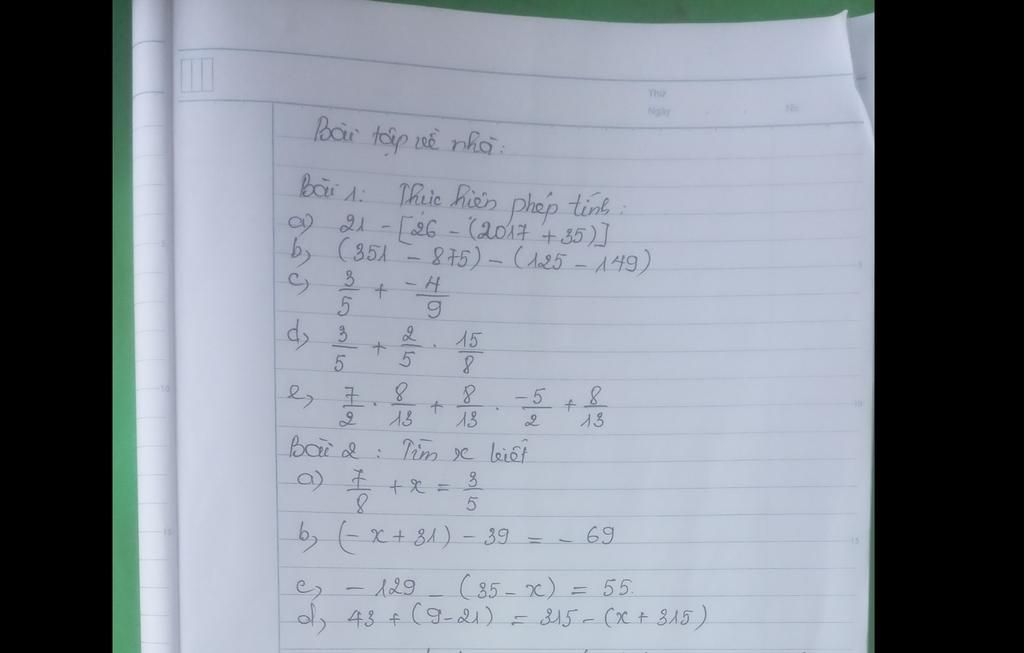 Thứ
Ngày
No
Bài tập về nhà:
Bài 1: Thực hiện phép tính:
a) 21 - [26 - (2017 + 35)]
b, (351 - 875) - (125 - 149)
c, 3/5 + -4/9
d, 3/5 + 2/5 . 15/8
e, 7/2 . 8/13 + 8/13 . -5/2 + 8/13
Bài 2 : Tìm x biết
a) 7/8 + x = 3/5
b, (- x + 31) - 39 = - 69
c, - 129 - (35 - x) = 55.
d, 43 + (9 - 21) = 315 - (x + 315)